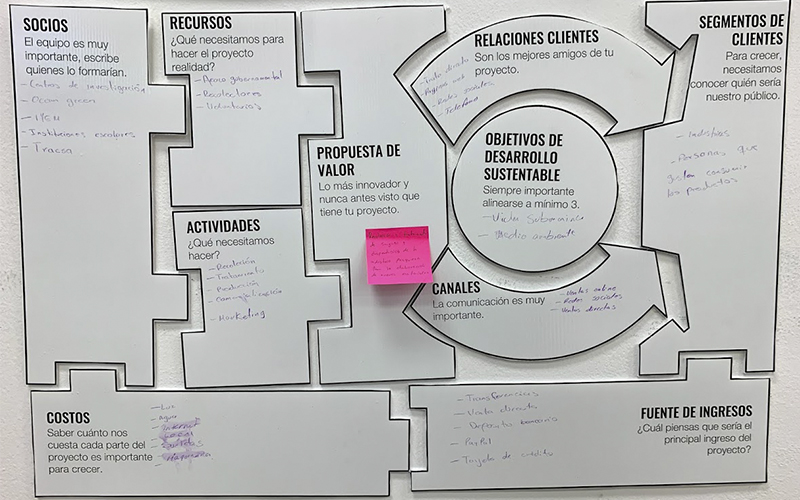 SOCIOS
El equipo es muy
importante, escribe
quienes lo formarían.
- Centros de investigación
- Ecom green
- Instituciones escolares
- Tracsa
RECURSOS
¿Qué necesitamos para
hacer el proyecto
realidad?
- Apoyo gubernamental
- Recolectores
- Voluntarios
ACTIVIDADES
¿Qué necesitamos
hacer?
- Recolección
- Tratamiento
- Producción
- Comercialización
- Marketing
PROPUESTA DE
VALOR
Lo más innovador y
nunca antes visto que
tiene tu proyecto.
RELACIONES CLIENTES
Son los mejores amigos de tu
proyecto.
- Trato directo
- Pagina web
- Redes sociales
- Telefono
OBJETIVOS DE
DESARROLLO
SUSTENTABLE
Siempre importante
alinearse a mínimo 3.
- Vida Submarina
- Medio ambiente
CANALES
La comunicación es muy
importante.
- Ventas online
- Redes sociales
- Ventas directas
SEGMENTOS DE
CLIENTES
Para crecer,
necesitamos
conocer quién sería
nuestro público.
- Industrias
- Personas que
gusten consumir
los productos
COSTOS
Saber cuánto nos
cuesta cada parte del
proyecto es importante
para crecer.
- Luz
- Agua
- Internet
FUENTE DE INGRESOS
¿Cuál piensas que sería el
principal ingreso del
proyecto?
- Transferencias
- Venta directa
- Deposito bancario
- PayPal
- Tarjeta de crédito